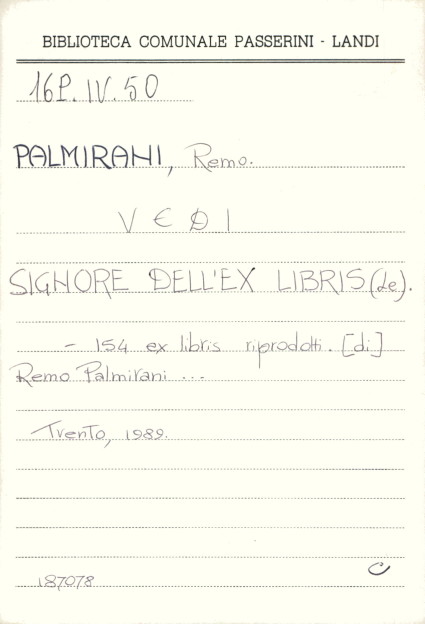 BIBLIOTECA COMUNALE PASSERINI - LANDI
16P.IV.50
PALMIRANI, Remo.
VEDI
SIGNORE DELL'EX LIBRIS (Le).
- 154 ex libris riprodotti. [di]
Remo Palmirani ...
Trento, 1989.
C
187078